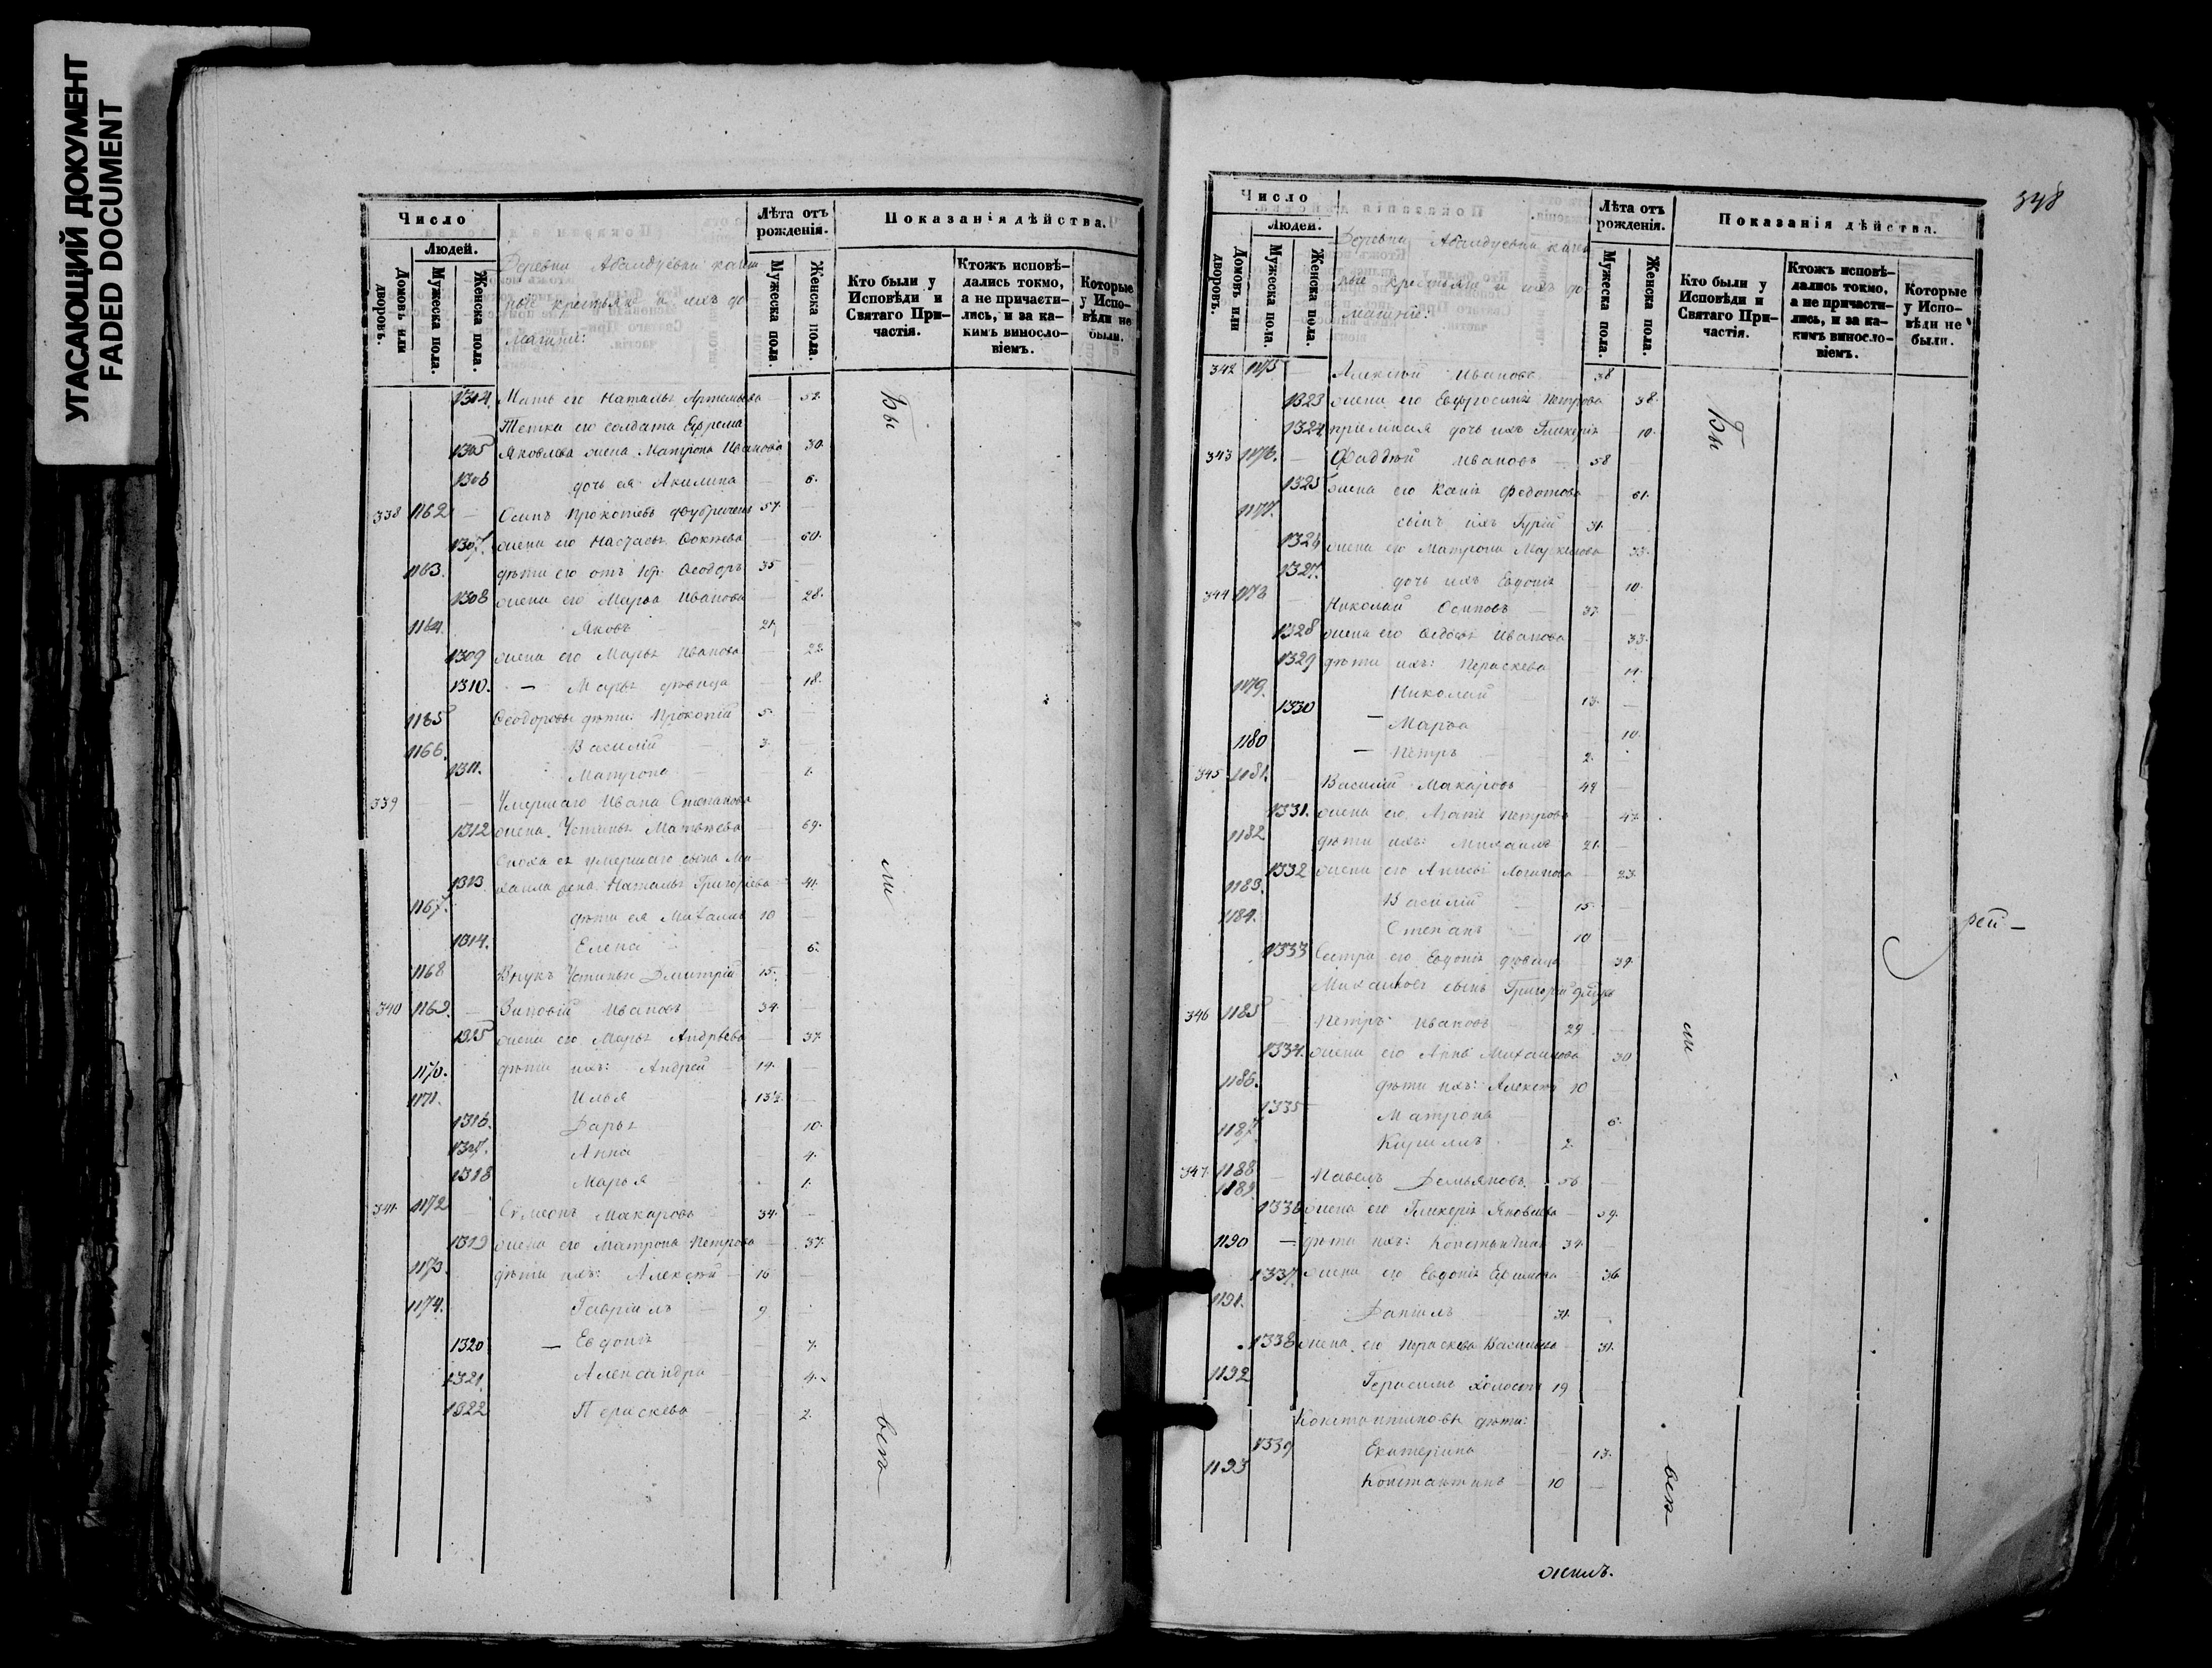 УГАСАЮЩИЙ ДОКУМЕНТ
FADED DOCUMENT
Число
Людей.
Домовъ или дворовъ.
Мужеска пола.
Женска пола.
Деревни Абалдуевки казен
ные крестьяне и ихъ до
машніе:
Лѣта отъ рожденія.
Мужеска пола.
Женска пола.
Показанія дѣйства.
Кто были у Исповѣди и Святаго Причастія.
Ктожъ исповѣдались токмо, а не причастились, и за какимъ винословіемъ.
Которые у Исповѣди не были.
1304. Мать его Наталья Артемьева — 52.
Тетка его солдата Ефрема
1305 Яковлева жена Матрона Иванова 30.
1306 дочь ея Акилина — 6.
338 1162 — Осипъ Прокопьевъ 57. —
1307. жена его Настасья — 60.
1163. дѣти его отъ Ѳеодоръ 35 —
1308 жена его Марѳа Иванова — 28.
1164. Яковъ 21. —
1309 жена его Марья Иванова — 22.
1310. — Марья дѣвица — 18.
1165 Ѳеодоровы дѣти: Прокопій 5. —
1166. Василій — 3. —
1311. Матрона — 1.
339 — Умершаго Ивана Степанова
1312 жена Устинья Матвѣева — 69.
Сноха ея умершаго сына Ми-
1313 хаила жена Наталья Григорьева — 41.
1167. дѣти ея Михаилъ 10 —
1314. Елена — 6.
1168 Внукъ Устиньи Дмитрій 15. —
340 1169. — Зиновій Ивановъ — 39. —
1315 жена его Марья Андрѣева — 37.
1170. дѣти ихъ: Андрей — 14. —
1171. Илья — 13. —
1316. Дарья — 10.
1317. Анна — 4.
1318 Марья — 1.
341. 1172 — Сѵмеонъ Макаровъ 34. —
1319 жена его Матрона Петрова — 37.
1173. дѣти ихъ: Алексѣй — 16 —
1174. Гавріилъ — 9 —
1320 — Евдокія — 7.
1321. Александра — 4.
1322 Параскева — 2.
Бы
ли
всѣ
348
Число
Людей.
Домовъ или дворовъ.
Мужеска пола.
Женска пола.
Деревни Абалдуевки казен
ные крестьяне и ихъ до
машніе:
Лѣта отъ рожденія.
Мужеска пола.
Женска пола.
Показанія дѣйства.
Кто были у Исповѣди и Святаго Причастія.
Ктожъ исповѣдались токмо, а не причастились, и за какимъ винословіемъ.
Которые у Исповѣди не были.
342 1175 — Алексѣй Ивановъ 38
1323 жена его Евфросинія Петрова 38.
1324 пріемная дочь ихъ Гликерія — 10.
343 1176. — Фаддѣй Ивановъ — 58 —
1325 жена его Ксенія Федотова — 61.
1177. сынъ ихъ Гурій 31. —
1326 жена его Матрона 33.
1327. дочь ихъ Евдокія — 10.
344 1178 — Николай Осиповъ — 37. —
1328 жена его Ѳедосья Иванова — 33.
1329 дѣти ихъ: Параскева — 14.
1179. Николай — 13. —
1330 — Марѳа — 10.
1180 — Петръ — 2. —
345 1181. — Василій Макаровъ — 49 —
1331. жена его Агапія Петрова — 47.
1182 дѣти ихъ: Михаилъ 21. —
1332 жена его Логинова — 23.
1183. Василій — 15. —
1184. Степанъ — 10 —
1333 Сестра его Евдокія дѣвица — 39.
Михаиловъ сынъ Григорій
346 1185 — Петръ Ивановъ — 29 —
1334. жена его Анна Михаилова 30
1186. дѣти ихъ: Алексѣй 10
1335 Матрона — 6.
1187. Кириллъ — 2. —
347. 1188 — Павелъ Демьяновъ — 56 —
1189.
1336 жена его Гликерія Яковлева — 59.
1190 — дѣти ихъ: Константинъ 39. —
1337. жена его Евдокія Ефимова — 36.
1191. Даніилъ — 31. —
1338 жена его Параскева Васильева — 31.
1192 Герасимъ холостъ 19 —
Константиновы дѣти:
1339 Екатерина — 13.
1193 Константинъ — 10 —
Бы
ли
всѣ
рей —